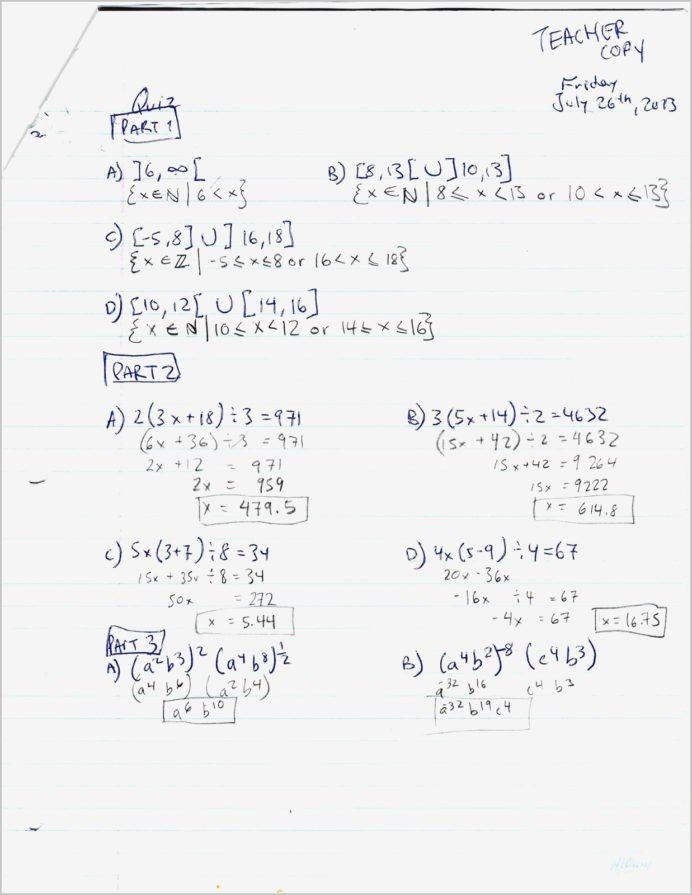 TEACHER
COPY
Friday
July 26th, 2013
Quiz
PART 1
A) ]6, ∞[
{x∈ℕ | 6 < x}
B) [8, 13[ ∪ ]10, 13]
{x ∈ ℕ | 8 ≤ x < 13 or 10 < x ≤ 13}
C) [-5, 8] ∪ ] 16, 18]
{x ∈ ℤ | -5 ≤ x ≤ 8 or 16 < x ≤ 18}
D) [10, 12[ ∪ [14, 16]
{x ∈ ℕ | 10 ≤ x < 12 or 14 ≤ x ≤ 16}
PART 2
A) 2(3x + 18) ÷ 3 = 971
(6x + 36) ÷ 3 = 971
2x + 12 = 971
2x = 959
x = 479.5
B) 3(5x + 14) ÷ 2 = 4632
(15x + 42) ÷ 2 = 4632
15x + 42 = 9264
15x = 9222
x = 614.8
C) 5x(3+7) ÷ 8 = 34
15x + 35x ÷ 8 = 34
50x = 272
x = 5.44
D) 4x(5-9) ÷ 4 = 67
20x - 36x
-16x ÷ 4 = 67
-4x = 67
x = 16.75
PART 3
A) (a²b³)² (a⁴b⁸)^½
(a⁴ b⁶) (a² b⁴)
a⁶ b¹⁰
B) (a⁴b²)⁻⁸ (c⁴b³)
a⁻³² b¹⁶ c⁴ b³
a⁻³² b¹⁹ c⁴